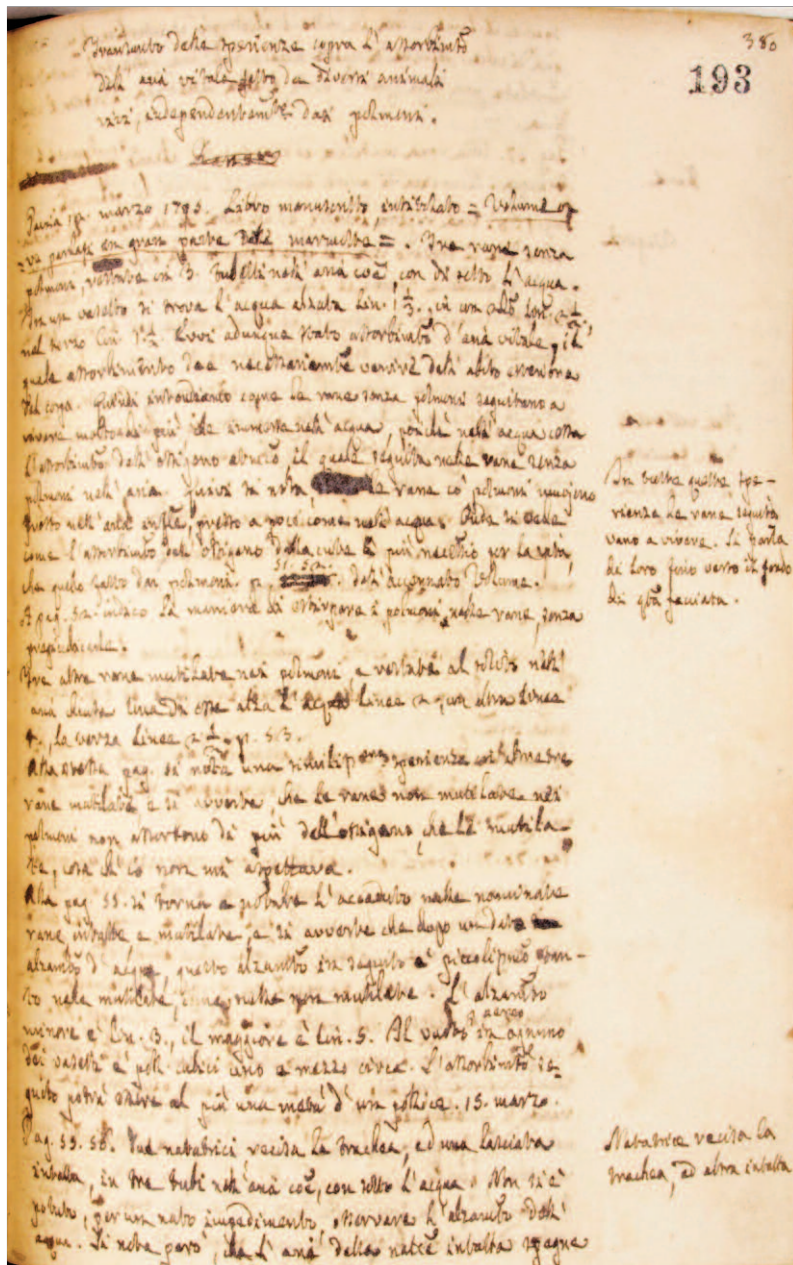 380
193
Transunto delle sperienze sopra l'assorbimto
dell' aria vitale fatto da diversi animali
vivi, independentemte dai polmoni.
Pavia marzo 1795. Libro manuscritto, intitolato = Volume
in gran parte delle = . Tre rane senza
polmoni, in 3. tubetti nell' aria coe, con di sotto l'acqua.
In un vasetto si trova l'acqua alzata lin. 1 1/3., in un altro lin.
nel terzo lin. 1 1/2. Evvi adunque stato assorbimto d'aria vitale, il
quale assorbimento dee necessariamte venire dall' abito esteriore
del corpo. Quindi intendiamo come le rane senza polmoni seguitano a
vivere moltissimo più immerse nell' acqua, poichè nell' acqua cessa
l'assorbimto dell' ossigeno aereo, il quale seguita nelle rane senza
polmoni nell' aria. Quivi si nota le rane co' polmoni muojono
presto nell' aria, presto a poco come nell' acqua. Onde si vede
come l'assorbimto dell' ossigeno della cute è più per la vita,
che quello fatto dai polmoni. p. 51. 52. dell' accennato Volume.
A pag. 52. indico la maniera di estirpare i polmoni nelle rane, senza
pregiudicarle.
Tre altre rane mutilate nei polmoni, e al solito nell'
aria chiusa. Una di esse alza l'acqua linee 2, un'altra linee
4., la terza linee 2 1/2. p. 53.
Alla stessa pag. si nota una simil sperienza con altre tre
rane mutilate e si avverte che le rane non mutilate nei
polmoni non assorbono di più dell' ossigeno, che le mutila-
te, cosa ch' io non mi aspettava.
Alla pag. 55. si torna a l'accaduto nelle nominate
rane intatte e mutilate, e si avverte che dopo un dato
alzamto d'acqua, questo alzamto in seguito è piccolissimo tan-
to nelle mutilate, che nelle non mutilate. L'alzamto
minore è lin. 3., il maggiore è lin. 5. Al vuoto aereo in ognuno
dei vasetti è poll. cubici uno e mezzo circa. L'assorbimto se-
guito potrà essere al più una metà d'un pollice. 15. marzo.
Pag. 55. 56. Due natatrici recisa la trachea, ed una lasciata
intatta, in tre tubi nell' aria coe, con sotto l'acqua. Non si è
potuto, per un nato impedimento, osservare l'alzamto dell'
acqua. Si nota però, che l'aria della natce intatta spegne
In tutte queste spe-
rienze le rane seguita-
vano a vivere. Si parla
di loro fino verso il fondo
di qta facciata.
Natatrice recisa la
trachea, ed altra intatta